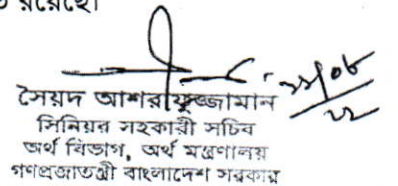 রয়েছে।
২২/০৮
২২
সৈয়দ আশরাফুজ্জামান
সিনিয়র সহকারী সচিব
অর্থ বিভাগ, অর্থ মন্ত্রণালয়
গণপ্রজাতন্ত্রী বাংলাদেশ সরকার